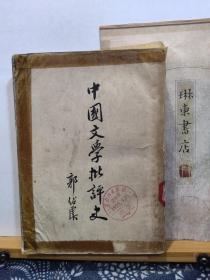 中國文學批評史
郭紹虞
琳東書店